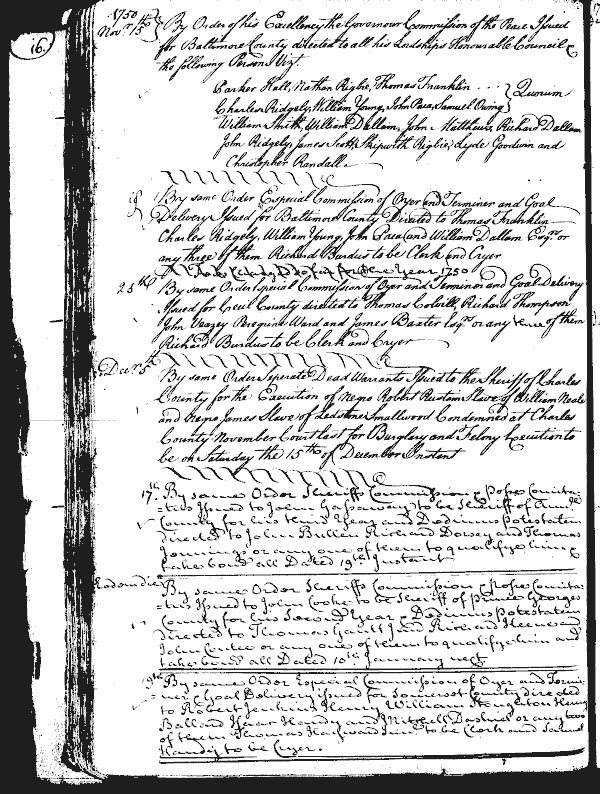 16.
1750
Nov.r 15th
By Order of his Excellency the Governour Commission of the Peace Issued
for Baltimore County directed to all his Lordships Honourable Council &
the following Persons Vizt.
Parker Hall, Nathan Rigbie, Thomas Franklin
Charles Ridgely, William Young, John Paca, Samuel Owing
Quorum
William Smith, William Dallam, John Matthews, Richard Dallam
John Ridgely, James Scott, Skipwith Rigbie, Lyde Goodwin and
Christopher Randall.
By same Order Especial Commission of Oyer and Terminer and Goal
Delivery Issued for Baltimore County Directed to Thomas Franklin
Charles Ridgely, William Young, John Paca and William Dallam Esqrs. or
any three of them Richard Burdus to be Clerk and Cryer
for the Year 1750
25th
By same Order Special Commission of Oyer and Terminer and Goal Delivery
Issued for Cecil County directed to Thomas Colvill, Richard Thompson
John Veazey Peregrine Ward and James Baxter Esqrs. or any three of them
Richard Burdus to be Clerk and Cryer
Decr. 5th
By same Order Seperate Dead Warrants Issued to the Sheriff of Charles
County for the Execution of Negro Robert Slave of William Neale
and Negro James Slave of Smallwood Condemned at Charles
County November Court last for Burglary and Felony Execution to
be on Saturday the 15th of December Instant
17th
By same Order Sheriffs Commission & Posse Comita-
=tus Issued to John Gassaway to be Sheriff of Ann
County for his third Year and Dedimus Potestatem
directed to John Bullen Richard Dorsey and Thomas
Jennings or any one of them to qualify him &
take bond all Dated 19th Instant
Eodem die
By same Order Sheriffs Commission & Posse Comita-
=tus Issued to John Cooke to be Sheriff of Prince Georges
County for his Second Year & Dedimus Potestatem
directed to Thomas Gantt Junr Richard Keene and
John Contee or any one of them to qualify him and
take bond all Dated 10th January next
19th
By same Order Especial Commission of Oyer and Termi-
ner & Goal Delivery Issued for Somerset County directed
to Robert Jenkins Henry William Stoughton Henry
Ballard Isaac Handy and Mitchell Dashiel or any two
of them Thomas Hayward Junr to be Clerk and Samuel
Handy to be Cryer.